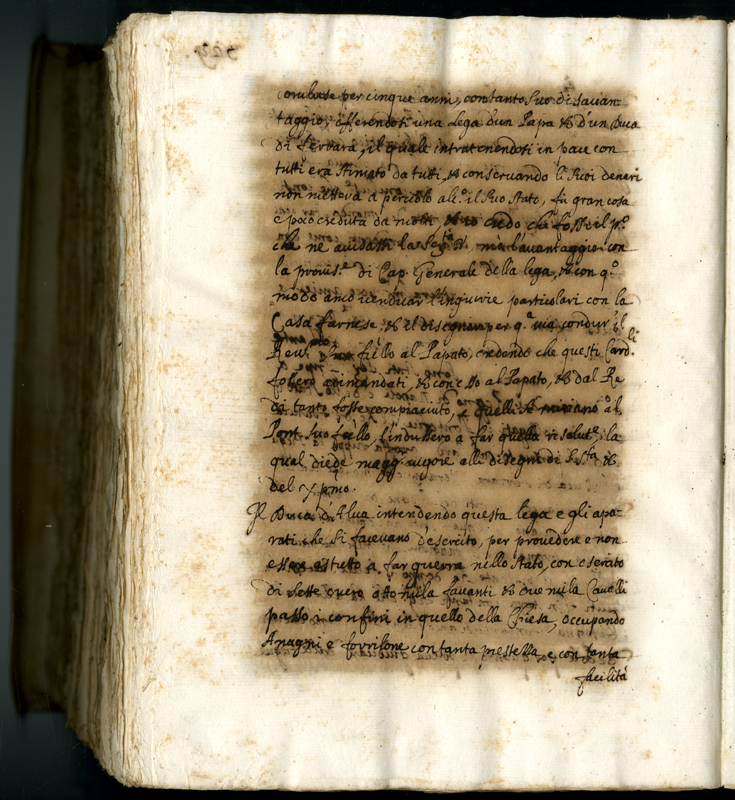 per cinque anni, con tanto suo disavan-
taggio, offerendosi una lega d'un Papa et d'un Duca
di Ferrara, il quale intratenendosi in pace con
tutti era stimato da tutti, et conservando li suoi denari
non metteva a pericolo alc.º il suo stato, fù gran cosa
e poco creduta da molti et io credo che fosse il p.º
che ne avidasse la mà l'avantaggio con
la provis.e di Cap. Generale della lega, et con q.º
modo anco vendicar l'ingiurie particolari con la
Casa farnese, et il disegnar per q.a via condur il
Rev.mo fr̃ello al Papato, credendo che questi Card.li
fossero adimandati, et con esso al Papato, et dal Re
di tanto fosse compiaciuto, e quelli al
Pont. suo fr̃ello, l'indussero a far quella resolut.e la
qual diede magg. vigore alli disegni di S. S.ta et
del X.pmo.
Il Duca d'Alva intendendo questa lega e gli apa-
rati che si facevano d'esercito, per provedere e non
essere astutto a far guerra nello stato, con esercito
di sette overo otto milla favanti et due milla Cavalli
passo i confini in quello della Chiesa, occupando
Anagni e fovrilone con tanta prestezza e con tanta
facilità